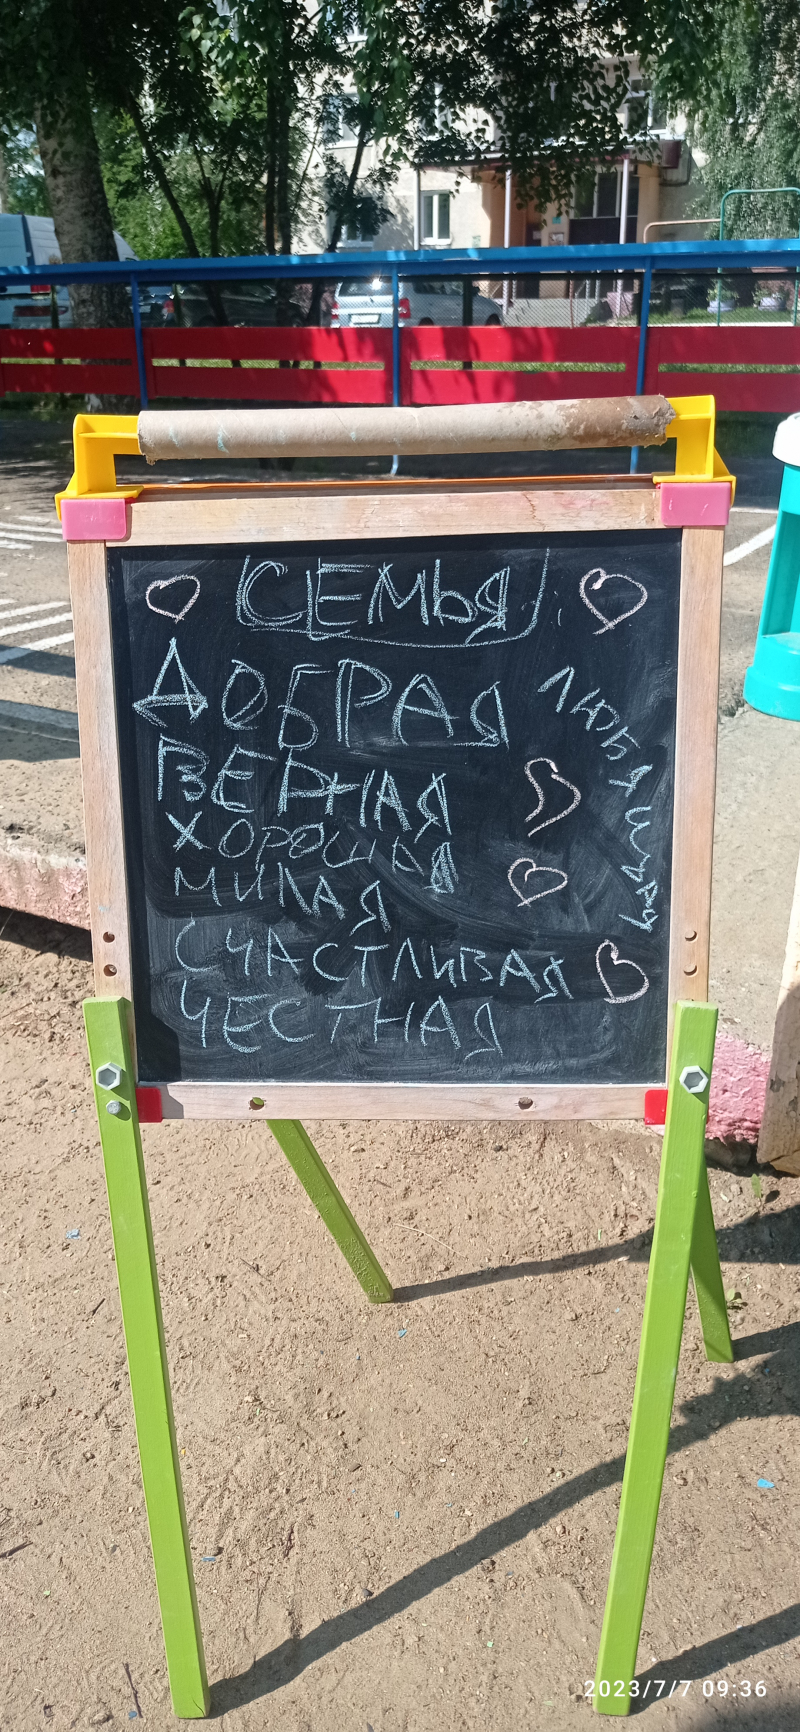 СЕМЬЯ
ДОБРАЯ
ЛЮБЯЩАЯ
ВЕРНАЯ
ХОРОШАЯ
МИЛАЯ
СЧАСТЛИВАЯ
ЧЕСТНАЯ
2023/7/7 09:36